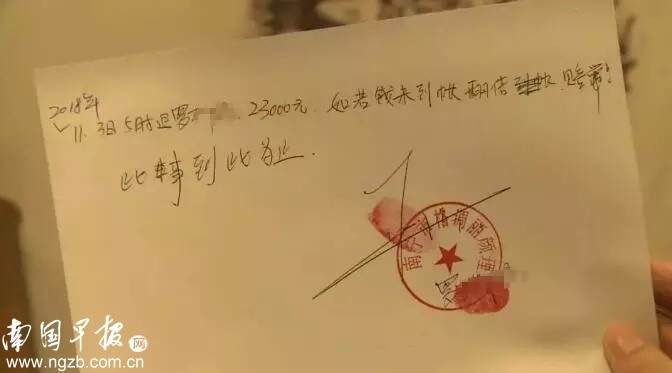 2018年
11.3日5时退罗 23000元. 如若钱未到帐翻倍 赔偿!
此事到此为止.
罗
南国早报网
www.ngzb.com.cn